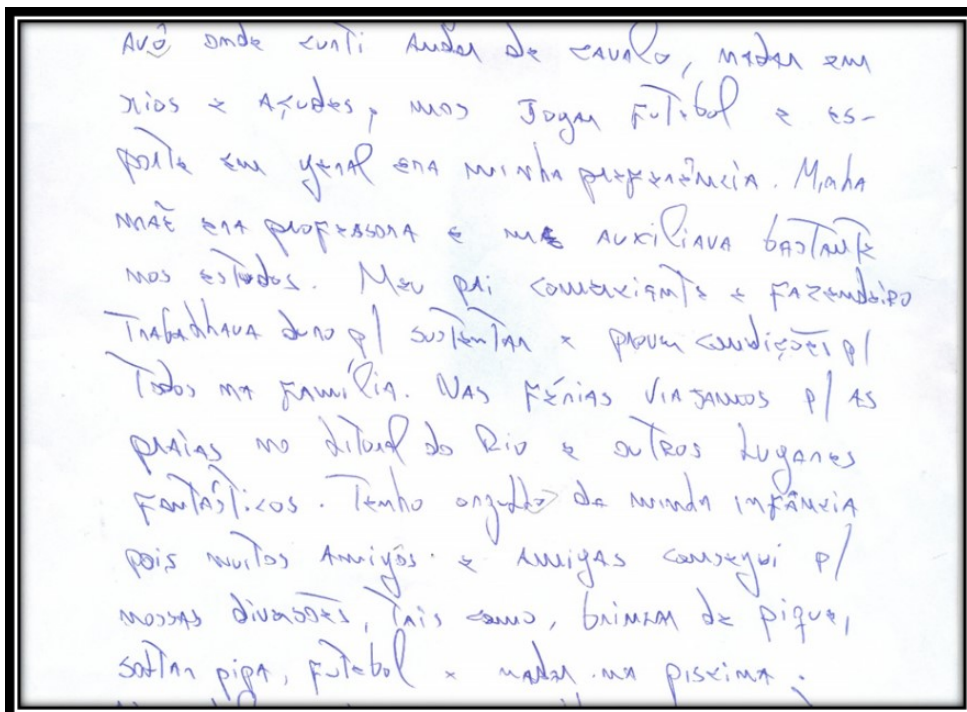 Avô onde curti andar de cavalo, nadar em
rios e açudes, mas jogar futebol e es-
porte em geral era minha preferência. Minha
mãe era professora e me auxiliava bastante
nos estudos. Meu pai comerciante e fazendeiro
trabalhava duro p/ sustentar e prover condições p/
todos na família. Nas férias viajamos p/ as
praias no litoral do Rio e outros lugares
fantásticos. Tenho orgulho da minha infância
pois muitos amigos e amigas consegui p/
nossas diversões, tais como, brincar de pique,
soltar pipa, futebol e nadar na piscina.